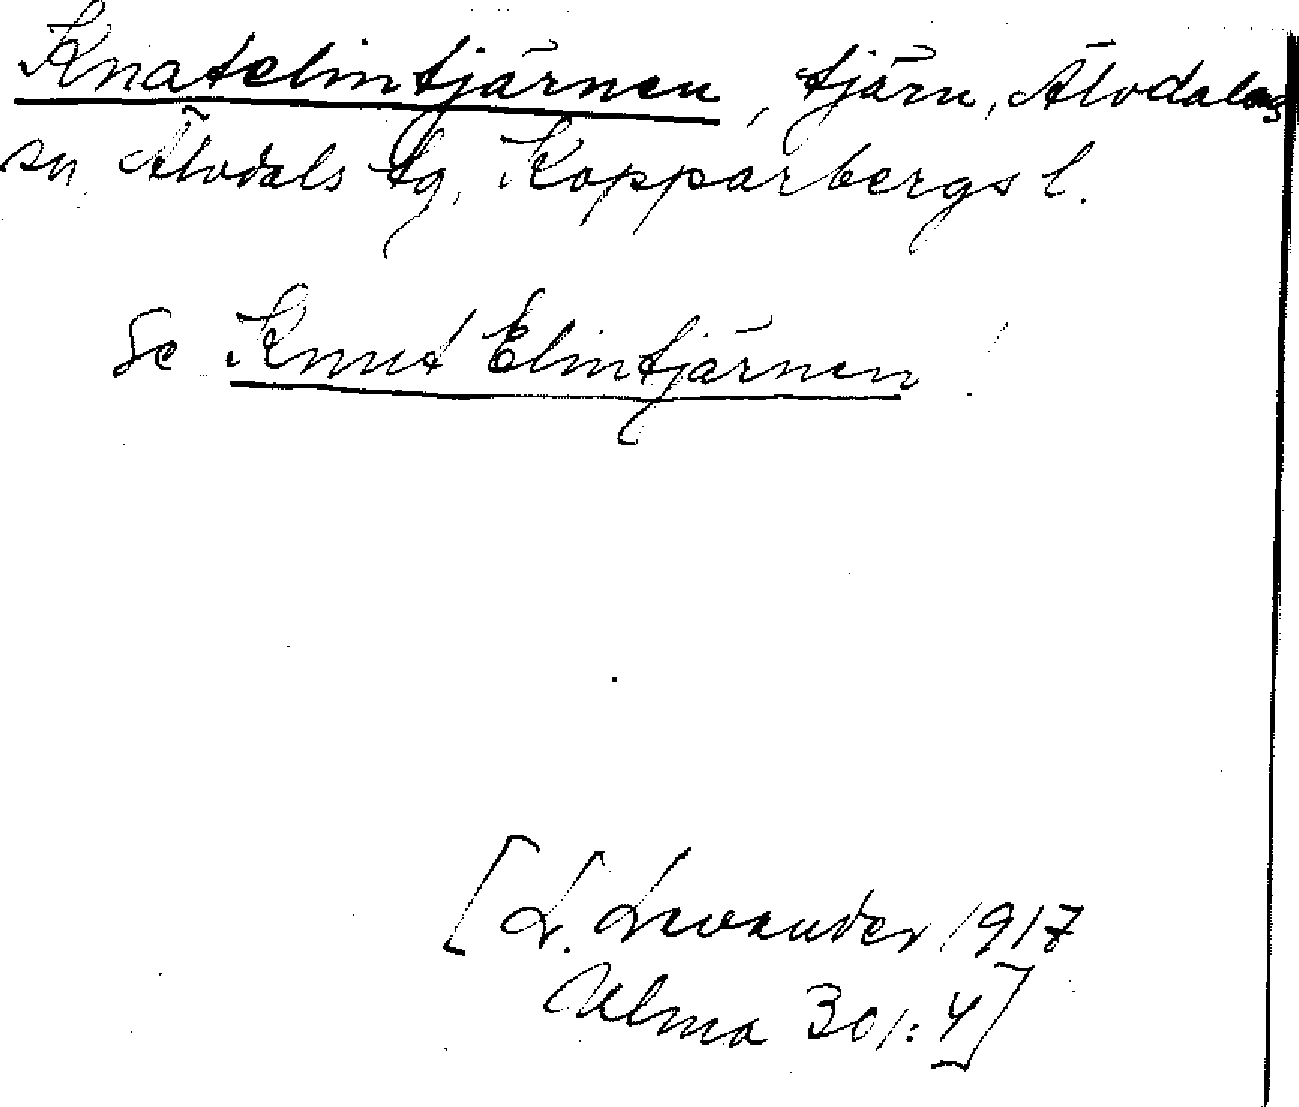 Knatelimtjärnen, tjärn, Älvdalens
sn, Älvdals tg, Kopparbergs l.
Se Knut Elimtjärnen
[L. Levander 1917
Ulma 301:4]